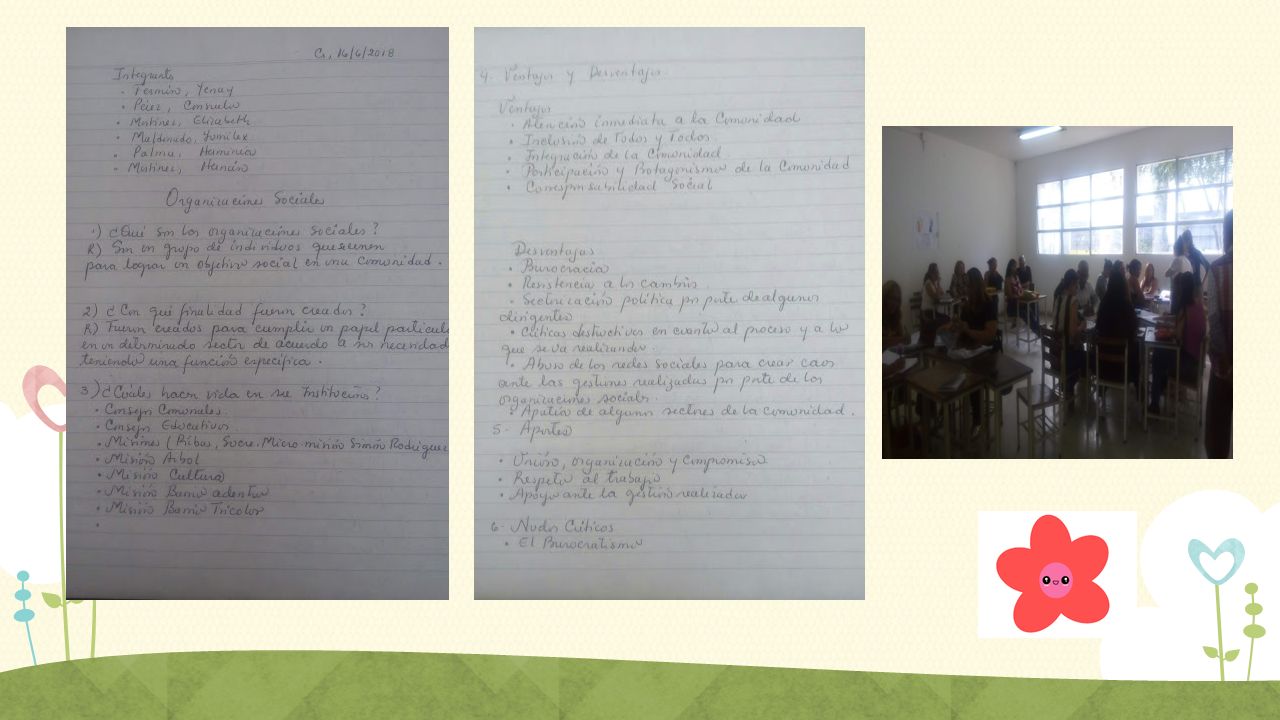 Cs, 16/6/2018
Integrants
• Fermín, Yenny
• Pérez, Consuelo
• Martínez, Elizabeth
• Maldonado, Yumilex
• Palma, Herminia
• Martínez, Hernán
Organizaciones Sociales
1) ¿Qué son las organizaciones sociales?
R) Son un grupo de individuos que se unen
para lograr un objetivo social en una comunidad.
2) ¿Con qué finalidad fueron creados?
R) Fueron creados para cumplir un papel particula
en un determinado sector de acuerdo a sus necesidad
teniendo una función específica.
3) ¿Cuáles hacen vida en su Institución?
• Consejo Comunales.
• Consejo Educativos.
• Misiones (Ribas, Sucre. Micro misión Simón Rodríguez
• Misión Arbol
• Misión Cultura
• Misión Barrio adentro
• Misión Barrio Tricolor
•
4. Ventajas y Desventajas.
Ventajas
• Atención inmediata a la Comunidad
• Inclusión de Todos y Todas
• Integración de la Comunidad.
• Participación y Protagonismo de la Comunidad
• Corresponsabilidad Social
Desventajas
• Burocracia
• Resistencia a los cambios.
• Sectorización política por parte de algunos
dirigentes
• Críticas destructivas en cuanto al proceso y a lo
que se va realizando.
• Abuso de las redes sociales para crear caos
ante las gestiones realizadas por parte de las
organizaciones sociales.
• Apatía de algunos sectores de la comunidad.
5- Aportes
• Unión, organización y compromiso
• Respeto al trabajo
• Apoyo ante la gestión realizada
6- Nudos Críticos
• El Burocratismo